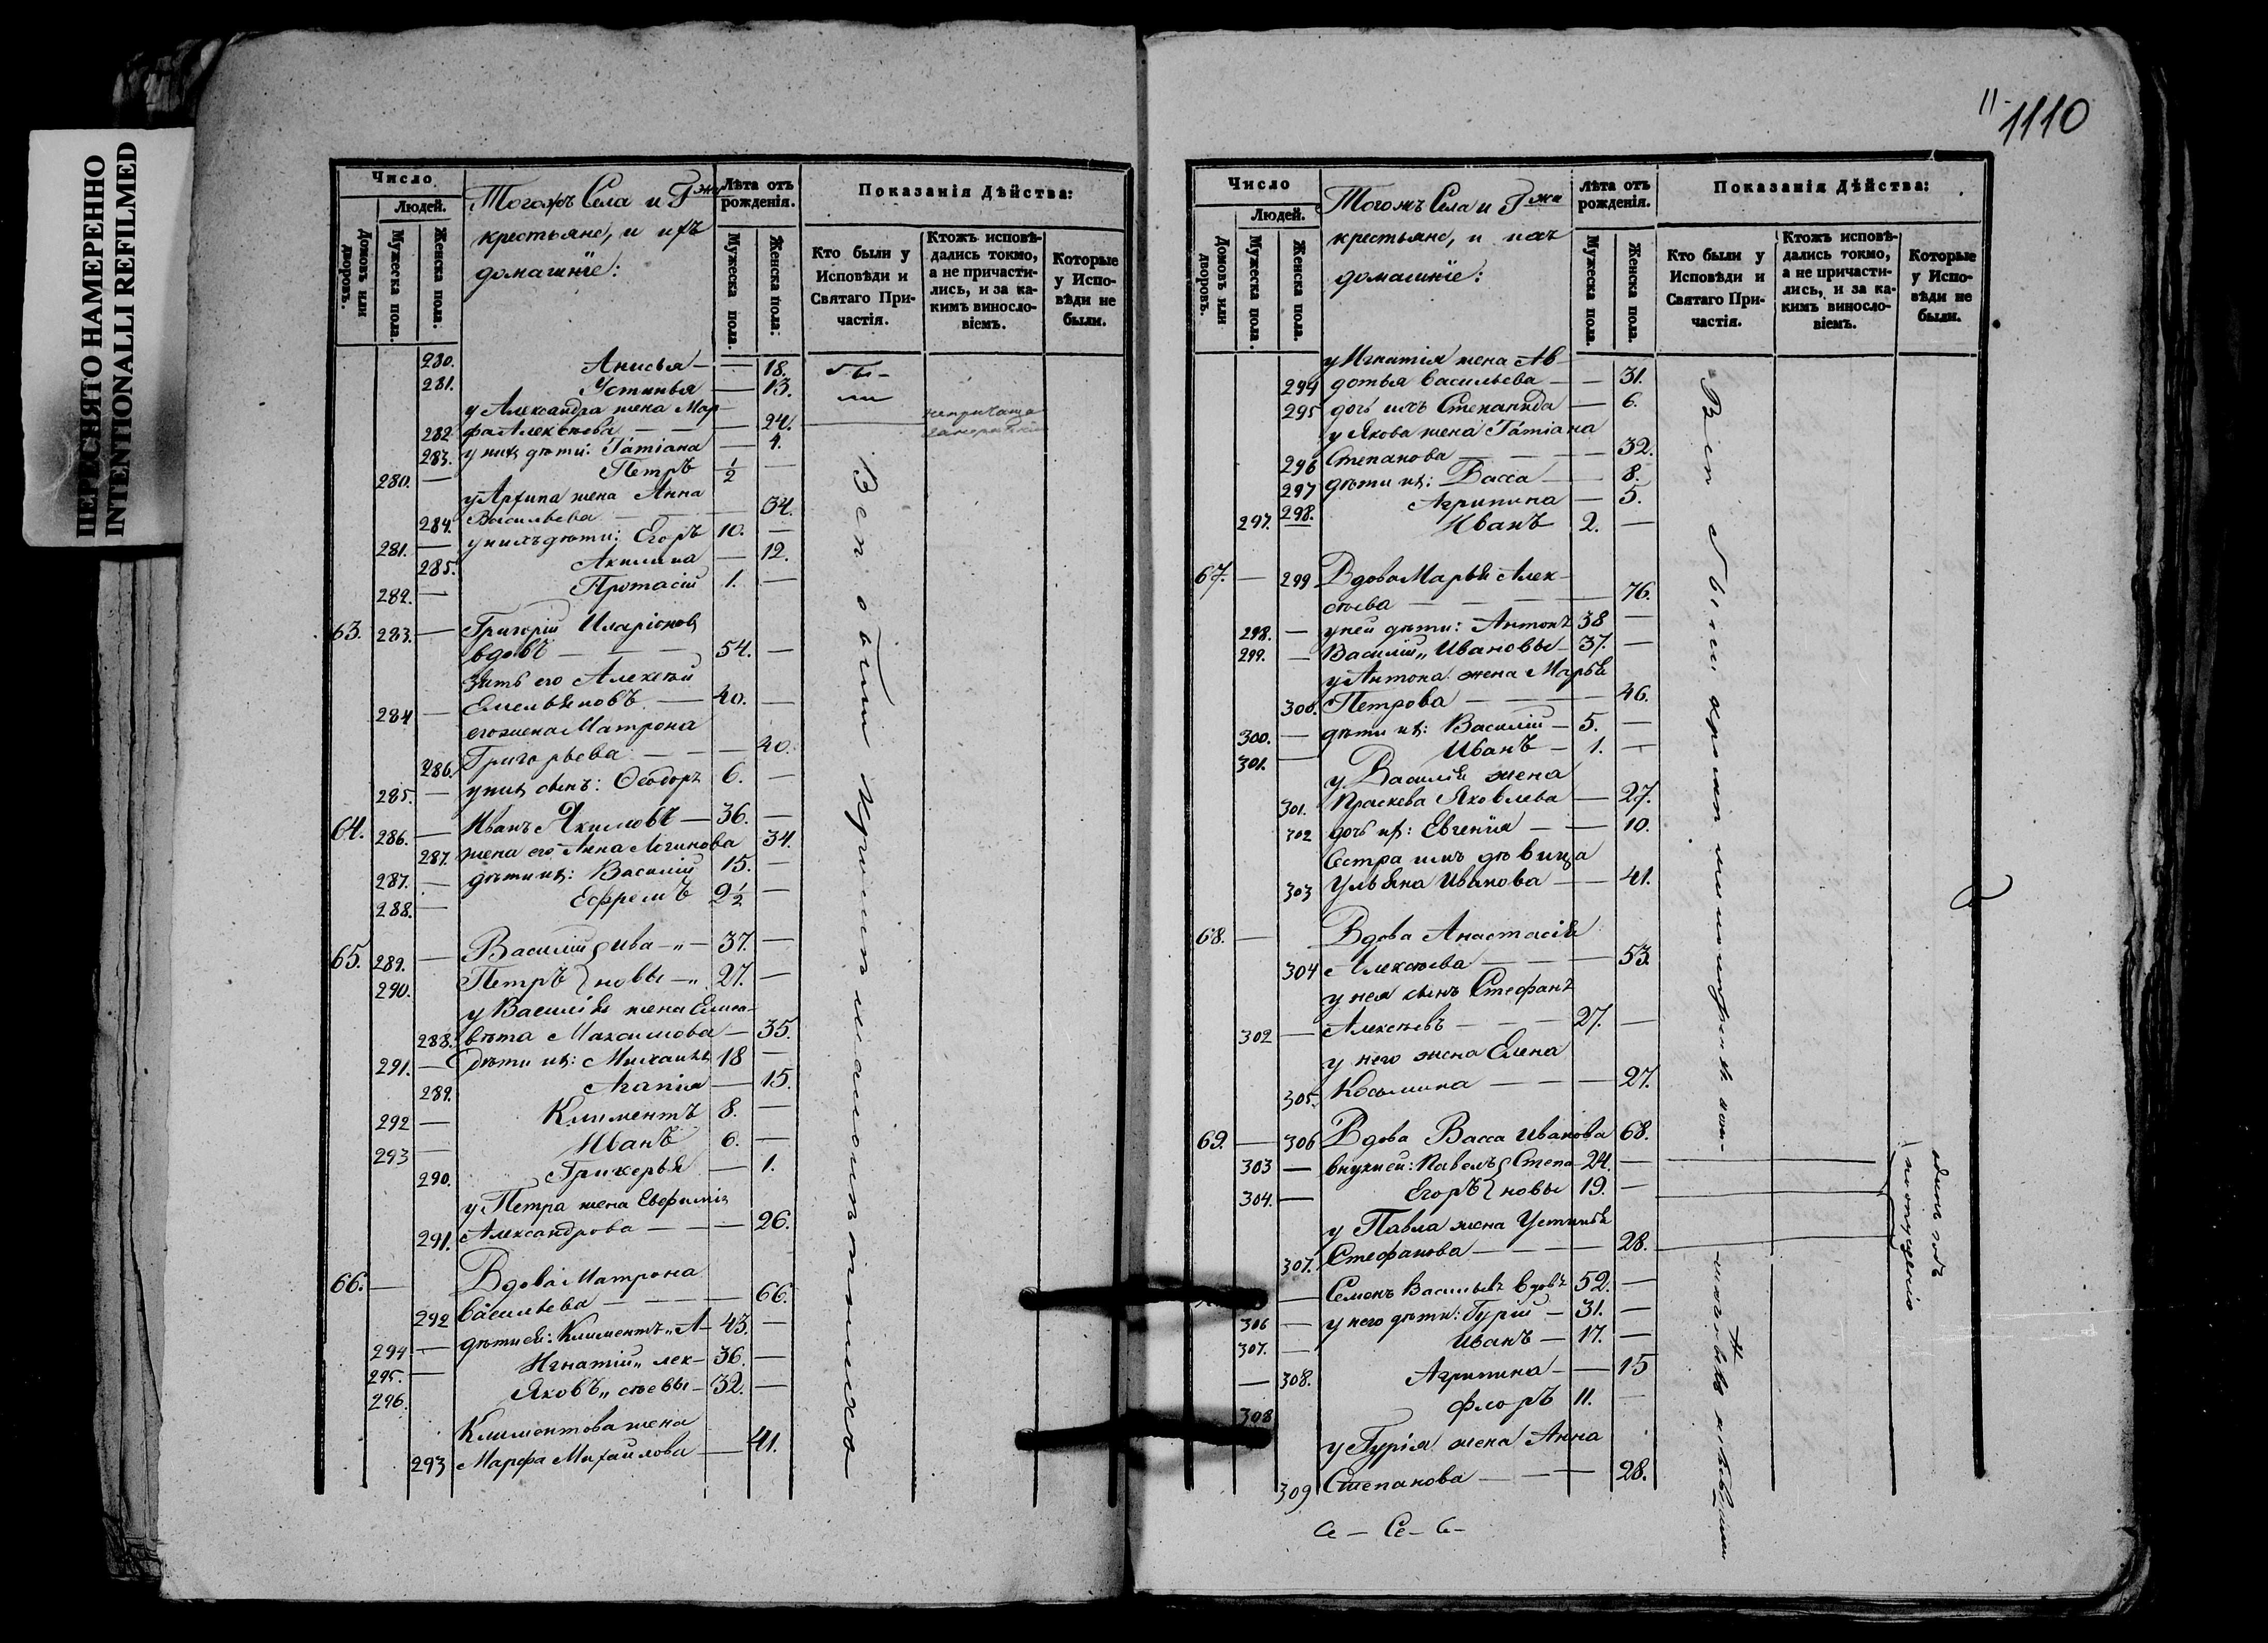 ПЕРЕСНЯТО НАМЕРЕННО
INTENTIONALLI REFILMED
Число
Людей.
Домовъ или дворовъ.
Мужеска пола.
Женска пола.
Тогожъ Села и Гжи
крестьяне, и ихъ
домашніе:
Лѣта отъ рожденія.
Мужеска пола.
Женска пола:
Показанія Дѣйства:
Кто были у Исповѣди и Святаго Причастія.
Ктожъ исповѣдались токмо, а не причастились, и за какимъ винословіемъ.
Которые у Исповѣди не были.
280. Анисья — — 18. бы-
281. Устинья — 13. ли
у Александра жена Мар-
282. фа Алексѣева — — 24.
283. у нихъ дѣти: Татіана — 4.
280. — Петръ ½ —
у Архипа жена Анна
284. Васильева — 34.
281. — у нихъ дѣти: Егоръ 10. —
285. Акилина — 12.
282. — Протасій 1. —
63. 283. — Григорій Иларіоновъ
вдовъ — — — 54. —
зять его Алексѣй
284 — Емельяновъ — 40. —
его жена Матрона
286. Григорьева — — — 40.
285. — у нихъ сынъ: Ѳеодоръ 6. —
64. 286. — Иванъ Акимовъ — 36. —
287. жена его Анна Логинова 34.
287. — дѣти ихъ: Василій 15. —
288. — Ефремъ 2½ —
65. 289. — Василій Ива-„- 37. —
290. Петръ новы-„ 27. —
у Василія жена Елиза-
288. вѣта Максимова — 35.
291. — дѣти ихъ: Михаилъ 18 —
289. Агапія — 15.
292 — Климентъ 8. —
293 — Иванъ 6. —
290. Гликерья — 1.
у Петра жена Евфимія
291. Александрова — — — 26.
66. — Вдова Матрона
292 Васильева — — — 66.
294 — дѣти ея: Климентъ„ А- 43. —
295. — Игнатій„ лек- 36. —
296. Яковъ„ сѣевы- 32. —
Климонтова жена
293 Марфа Михайлова — 41.
Вси были кромѣ малолѣтнихъ
11-1110
Число
Людей.
Домовъ или дворовъ.
Мужеска пола.
Женска пола.
Тогожъ Села и Гжи
крестьяне, и ихъ
домашніе:
Лѣта отъ рожденія.
Мужеска пола.
Женска пола.
Показанія Дѣйства:
Кто были у Исповѣди и Святаго Причастія.
Ктожъ исповѣдались токмо, а не причастились, и за какимъ винословіемъ.
Которые у Исповѣди не были.
у Игнатія жена Ав-
294 дотья Васильева — — 31.
295 дочь ихъ Степанида — 6.
у Якова жена Татіана
296 Степанова — — — 32.
297 дѣти ихъ: Васса — 8.
298. Агрипина — 5.
297. — Иванъ 2. —
67. — 299 Вдова Марья Алек-
сѣева — — — — 76.
298. — у ней дѣти: Антонъ 38 —
299. — Василій„ Ивановы- 37. —
у Антона жена Марья
300. Петрова — — — 46.
300. — дѣти ихъ: Василій — 5. —
301. — Иванъ — 1. —
у Василія жена
301. Праскева Яковлева — 27.
302 дочь ихъ: Евгенія — — 10.
Сестра ихъ дѣвица
303 Ульяна Иванова — — 41.
68. — Вдова Анастасія
304 Алексѣева — — — 53.
у нея сынъ Стефанъ
302 — Алексѣевъ — — — 27. —
у него жена Елена
305. Косьмина — — — 27.
69. — 306 Вдова Васса Иванова 68.
303 — внуки ей: Павелъ Степа- 24. —
304. — Егоръ новы 19. —
у Павла жена Устинья
307. Стефанова — — — 28.
— Семенъ Васильевъ вдовъ 52. —
306 — у него дѣти: Гурій — 31. —
307. — Иванъ — 17. —
— 308. Агрипина — — 15
308 Флоръ 11. —
у Гурія жена Анна
309 Степанова — — — 28.
Вси были кромѣ